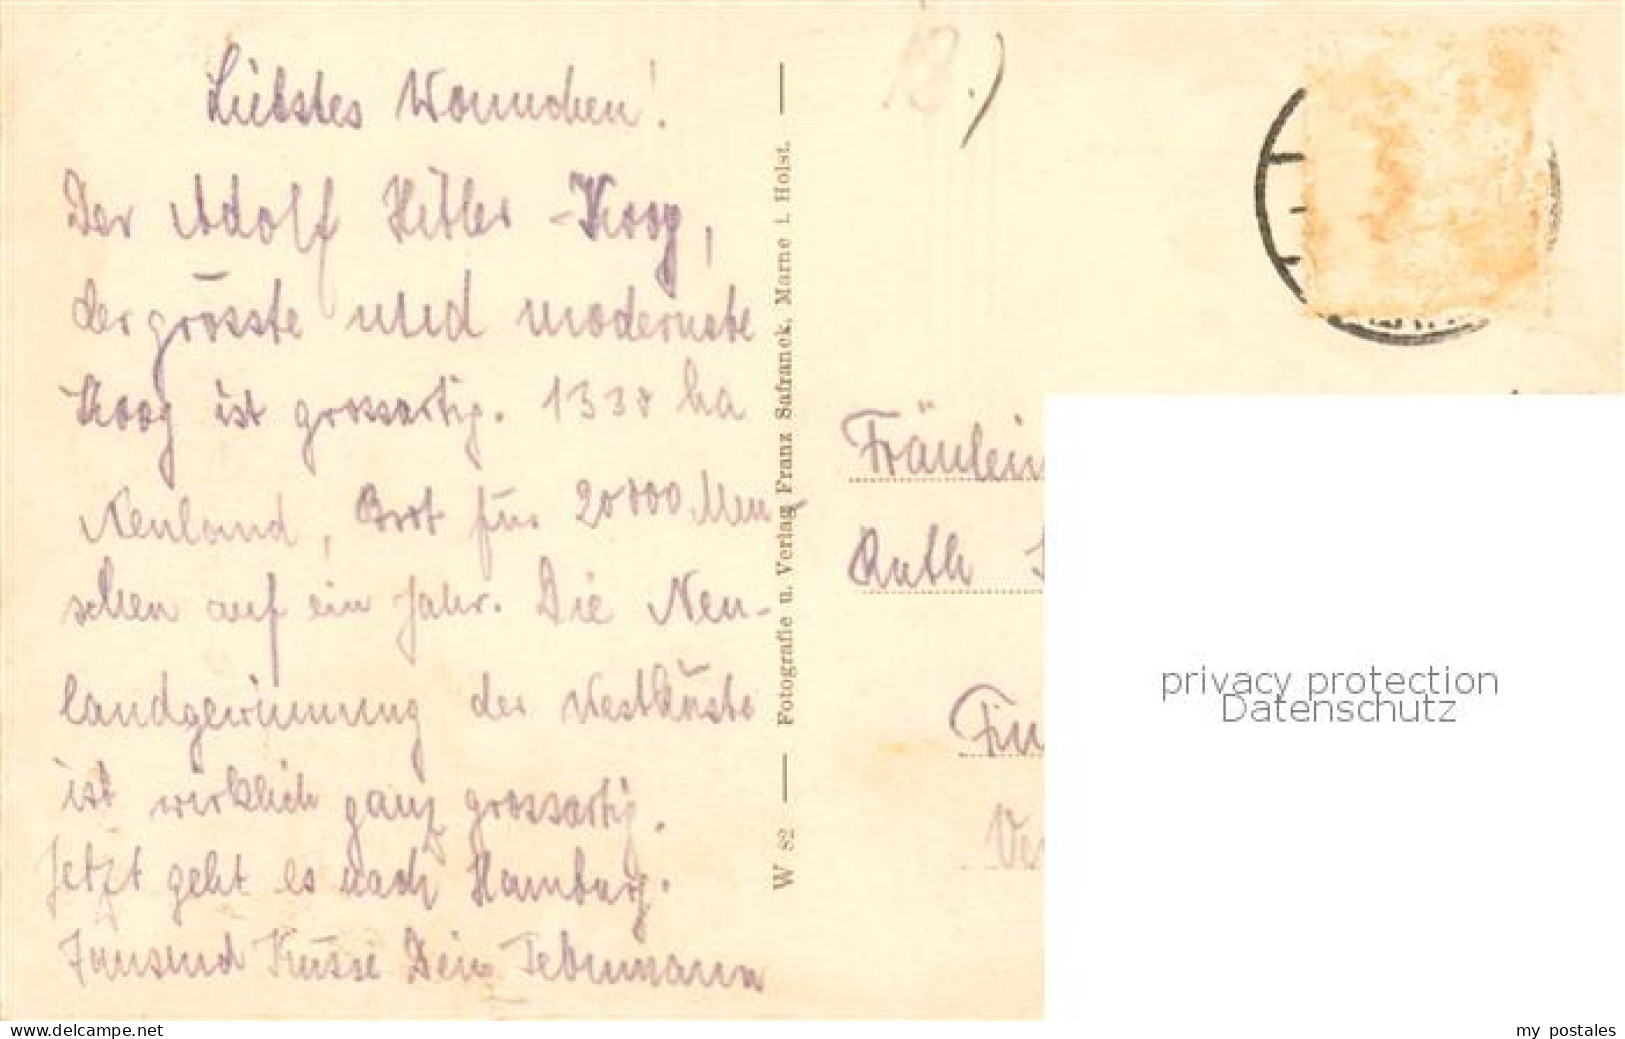 Liebstes Wonnchen!
Der Adolf Hitler-Koog,
der grösste und modernste
Koog ist grossartig. 1338 ha
Neuland, Brot für 20000 Men-
schen auf ein Jahr. Die Neu-
landgewinnung der Westküste
ist wirklich ganz grossartig.
Jetzt geht es nach Hamburg.
Tausend Küsse Dein
W 82 — Fotografie u. Verlag Franz Safranek, Marne i. Holst. —
Fräulein
Ruth
privacy protection
Datenschutz
www.delcampe.net
my postales